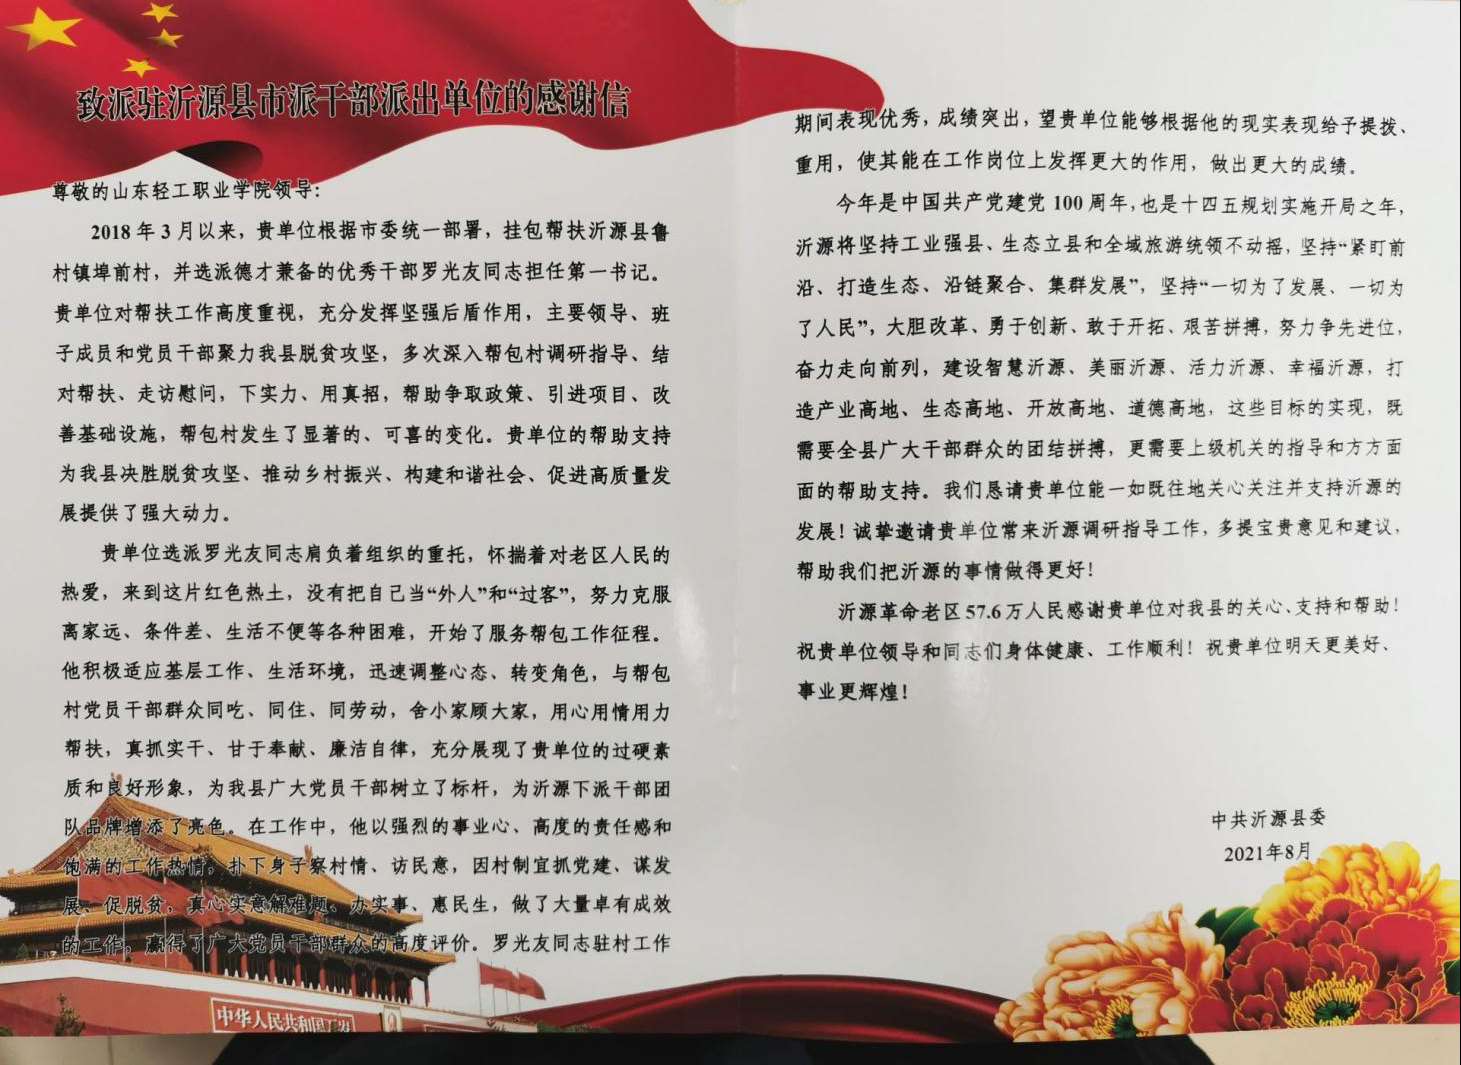 致派驻沂源县市派干部派出单位的感谢信
尊敬的山东轻工职业学院领导：
2018年3月以来，贵单位根据市委统一部署，挂包帮扶沂源县鲁
村镇埠前村，并选派德才兼备的优秀干部罗光友同志担任第一书记。
贵单位对帮扶工作高度重视，充分发挥坚强后盾作用，主要领导、班
子成员和党员干部聚力我县脱贫攻坚，多次深入帮包村调研指导、结
对帮扶、走访慰问，下实力、用真招，帮助争取政策、引进项目、改
善基础设施，帮包村发生了显著的、可喜的变化。贵单位的帮助支持
为我县决胜脱贫攻坚、推动乡村振兴、构建和谐社会、促进高质量发
展提供了强大动力。
贵单位选派罗光友同志肩负着组织的重托，怀揣着对老区人民的
热爱，来到这片红色热土，没有把自己当“外人”和“过客”，努力克服
离家远、条件差、生活不便等各种困难，开始了服务帮包工作征程。
他积极适应基层工作、生活环境，迅速调整心态、转变角色，与帮包
村党员干部群众同吃、同住、同劳动，舍小家顾大家，用心用情用力
帮扶，真抓实干、甘于奉献、廉洁自律，充分展现了贵单位的过硬素
质和良好形象，为我县广大党员干部树立了标杆，为沂源下派干部团
队品牌增添了亮色。在工作中，他以强烈的事业心、高度的责任感和
饱满的工作热情，扑下身子察村情、访民意，因村制宜抓党建、谋发
展、促脱贫，真心实意解难题、办实事、惠民生，做了大量卓有成效
的工作，赢得了广大党员干部群众的高度评价。罗光友同志驻村工作
中华人民共和国万岁
期间表现优秀，成绩突出，望贵单位能够根据他的现实表现给予提拨、
重用，使其能在工作岗位上发挥更大的作用，做出更大的成绩。
今年是中国共产党建党100周年，也是十四五规划实施开局之年，
沂源将坚持工业强县、生态立县和全域旅游统领不动摇，坚持“紧盯前
沿、打造生态、沿链聚合、集群发展”，坚持“一切为了发展、一切为
了人民”，大胆改革、勇于创新、敢于开拓、艰苦拼搏，努力争先进位，
奋力走向前列，建设智慧沂源、美丽沂源、活力沂源、幸福沂源，打
造产业高地、生态高地、开放高地、道德高地，这些目标的实现，既
需要全县广大干部群众的团结拼搏，更需要上级机关的指导和方方面
面的帮助支持。我们恳请贵单位能一如既往地关心关注并支持沂源的
发展！诚挚邀请贵单位常来沂源调研指导工作，多提宝贵意见和建议，
帮助我们把沂源的事情做得更好！
沂源革命老区57.6万人民感谢贵单位对我县的关心、支持和帮助！
祝贵单位领导和同志们身体健康、工作顺利！祝贵单位明天更美好、
事业更辉煌！
中共沂源县委
2021年8月